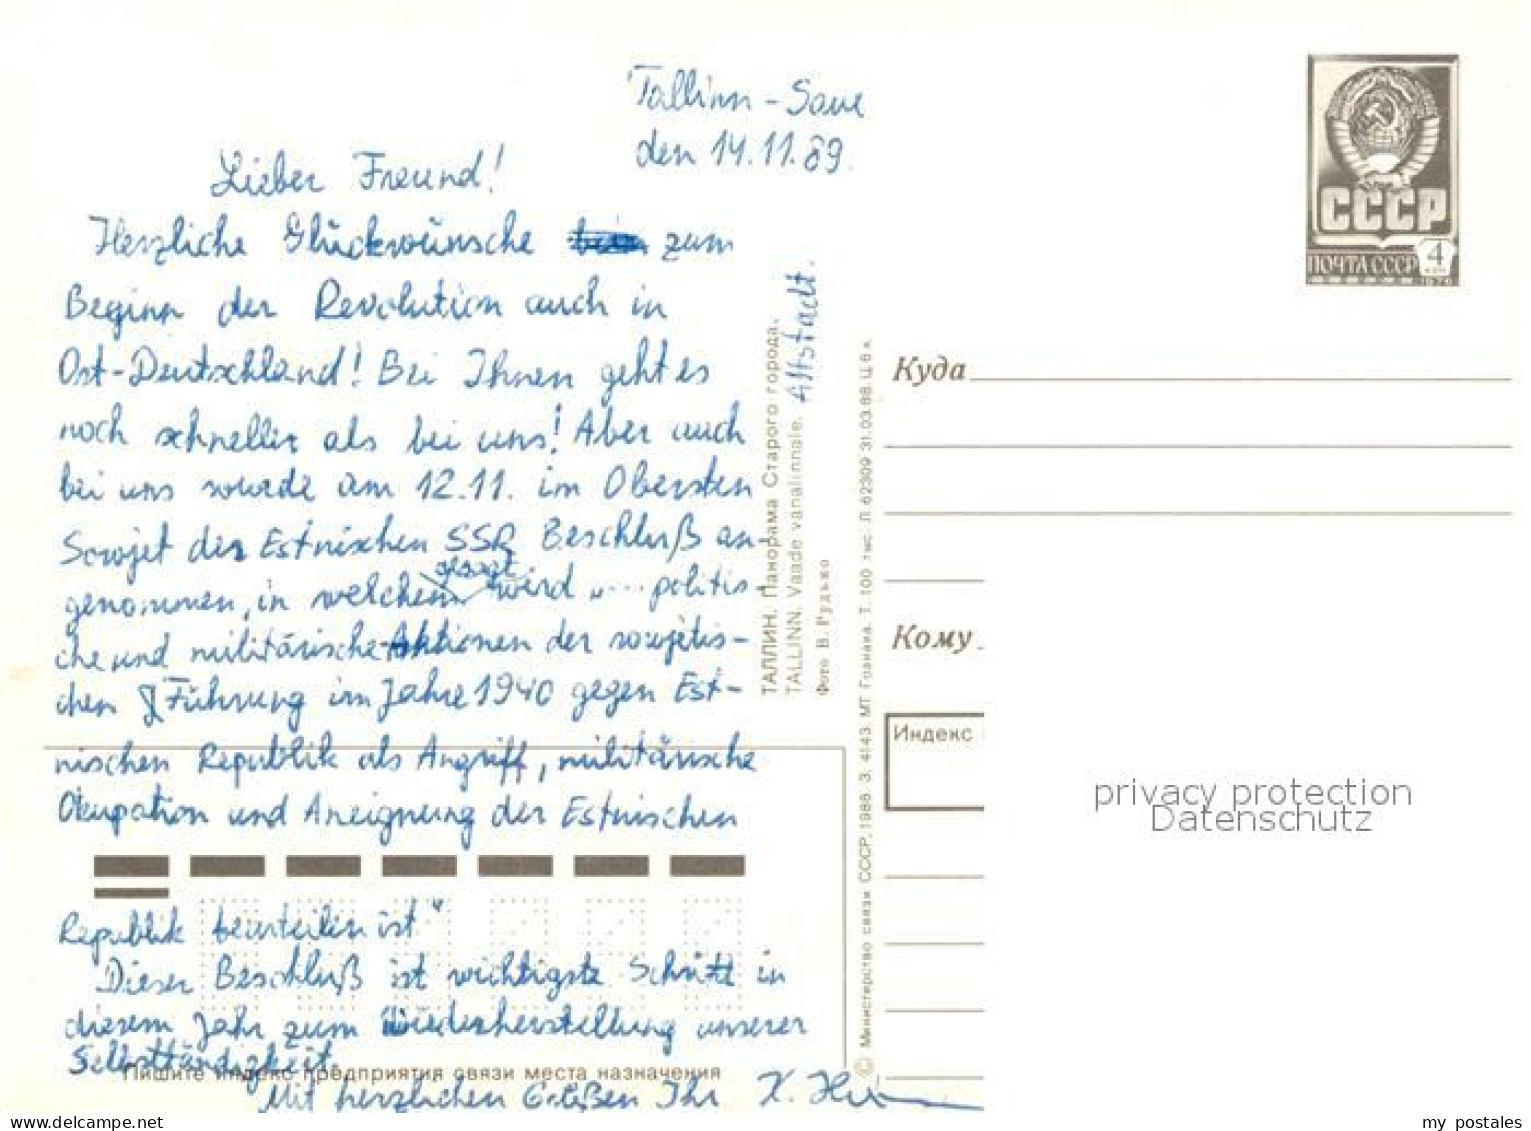 Tallinn - Saue
den 14.11.89.
Lieber Freund!
Herzliche Glückwünsche zum
Beginn der Revolution auch in
Ost-Deutschland! Bei Ihnen geht es
noch schneller als bei uns! Aber auch
bei uns wurde am 12.11. im Obersten
Sowjet der Estnischen SSR Beschluß an-
genommen, in welchem gesagt wird "... politis-
che und militärische Aktionen der sowjetis-
chen Führung im Jahre 1940 gegen Est-
nischen Republik als Angriff, militärische
Okupation und Aneignung der Estnischen
Republik beurteilen ist"
Dieser Beschluß ist wichtigste Schritt in
diesem Jahr zum Wiederherstellung unserer
Selbständigkeit.
Mit herzlichen Grüßen Ihr
Пишите индекс предприятия связи места назначения
ТАЛЛИН. Панорама Старого города.
TALLINN. Vaade vanalinnale. Altstadt.
Фото В. Рудько
© Министерство связи СССР, 1988. З. 4143. МТ Гознака. Т. 100 тыс. Л 62309 31.03.88 Ц 6 к.
СССР
ПОЧТА СССР 4
КОП
Куда
Кому
Индекс
privacy protection
Datenschutz
delcampe.net
my postales